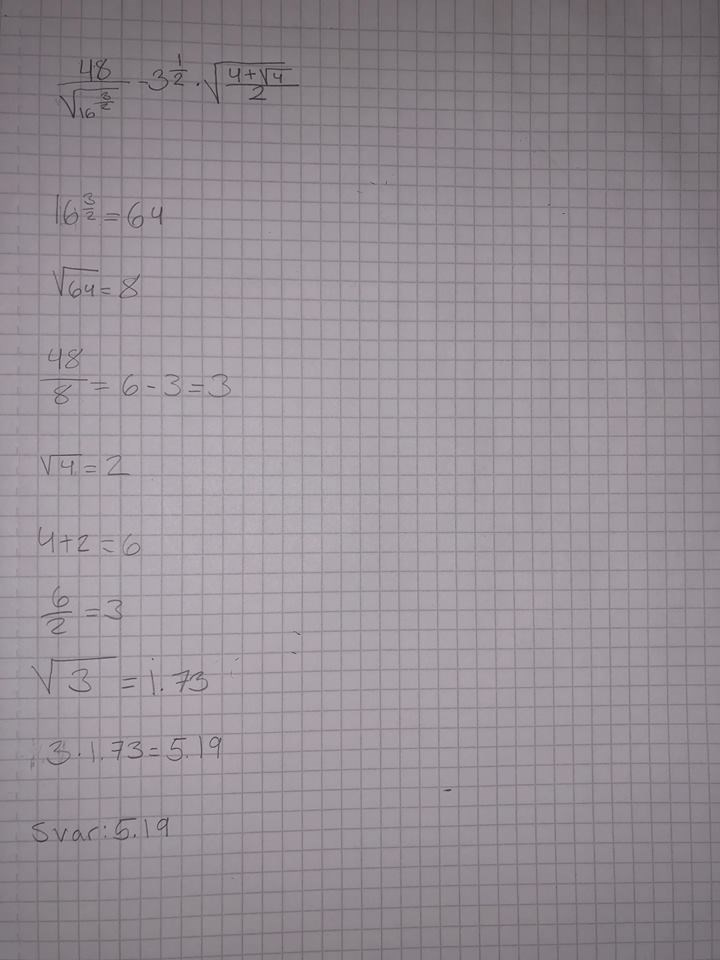 48/√(16^(3/2)) - 3^(1/2) · √((4+√4)/2)
16^(3/2) = 64
√64 = 8
48/8 = 6 - 3 = 3
√4 = 2
4+2 = 6
6/2 = 3
√3 = 1.73
3 · 1.73 = 5.19
Svar: 5.19